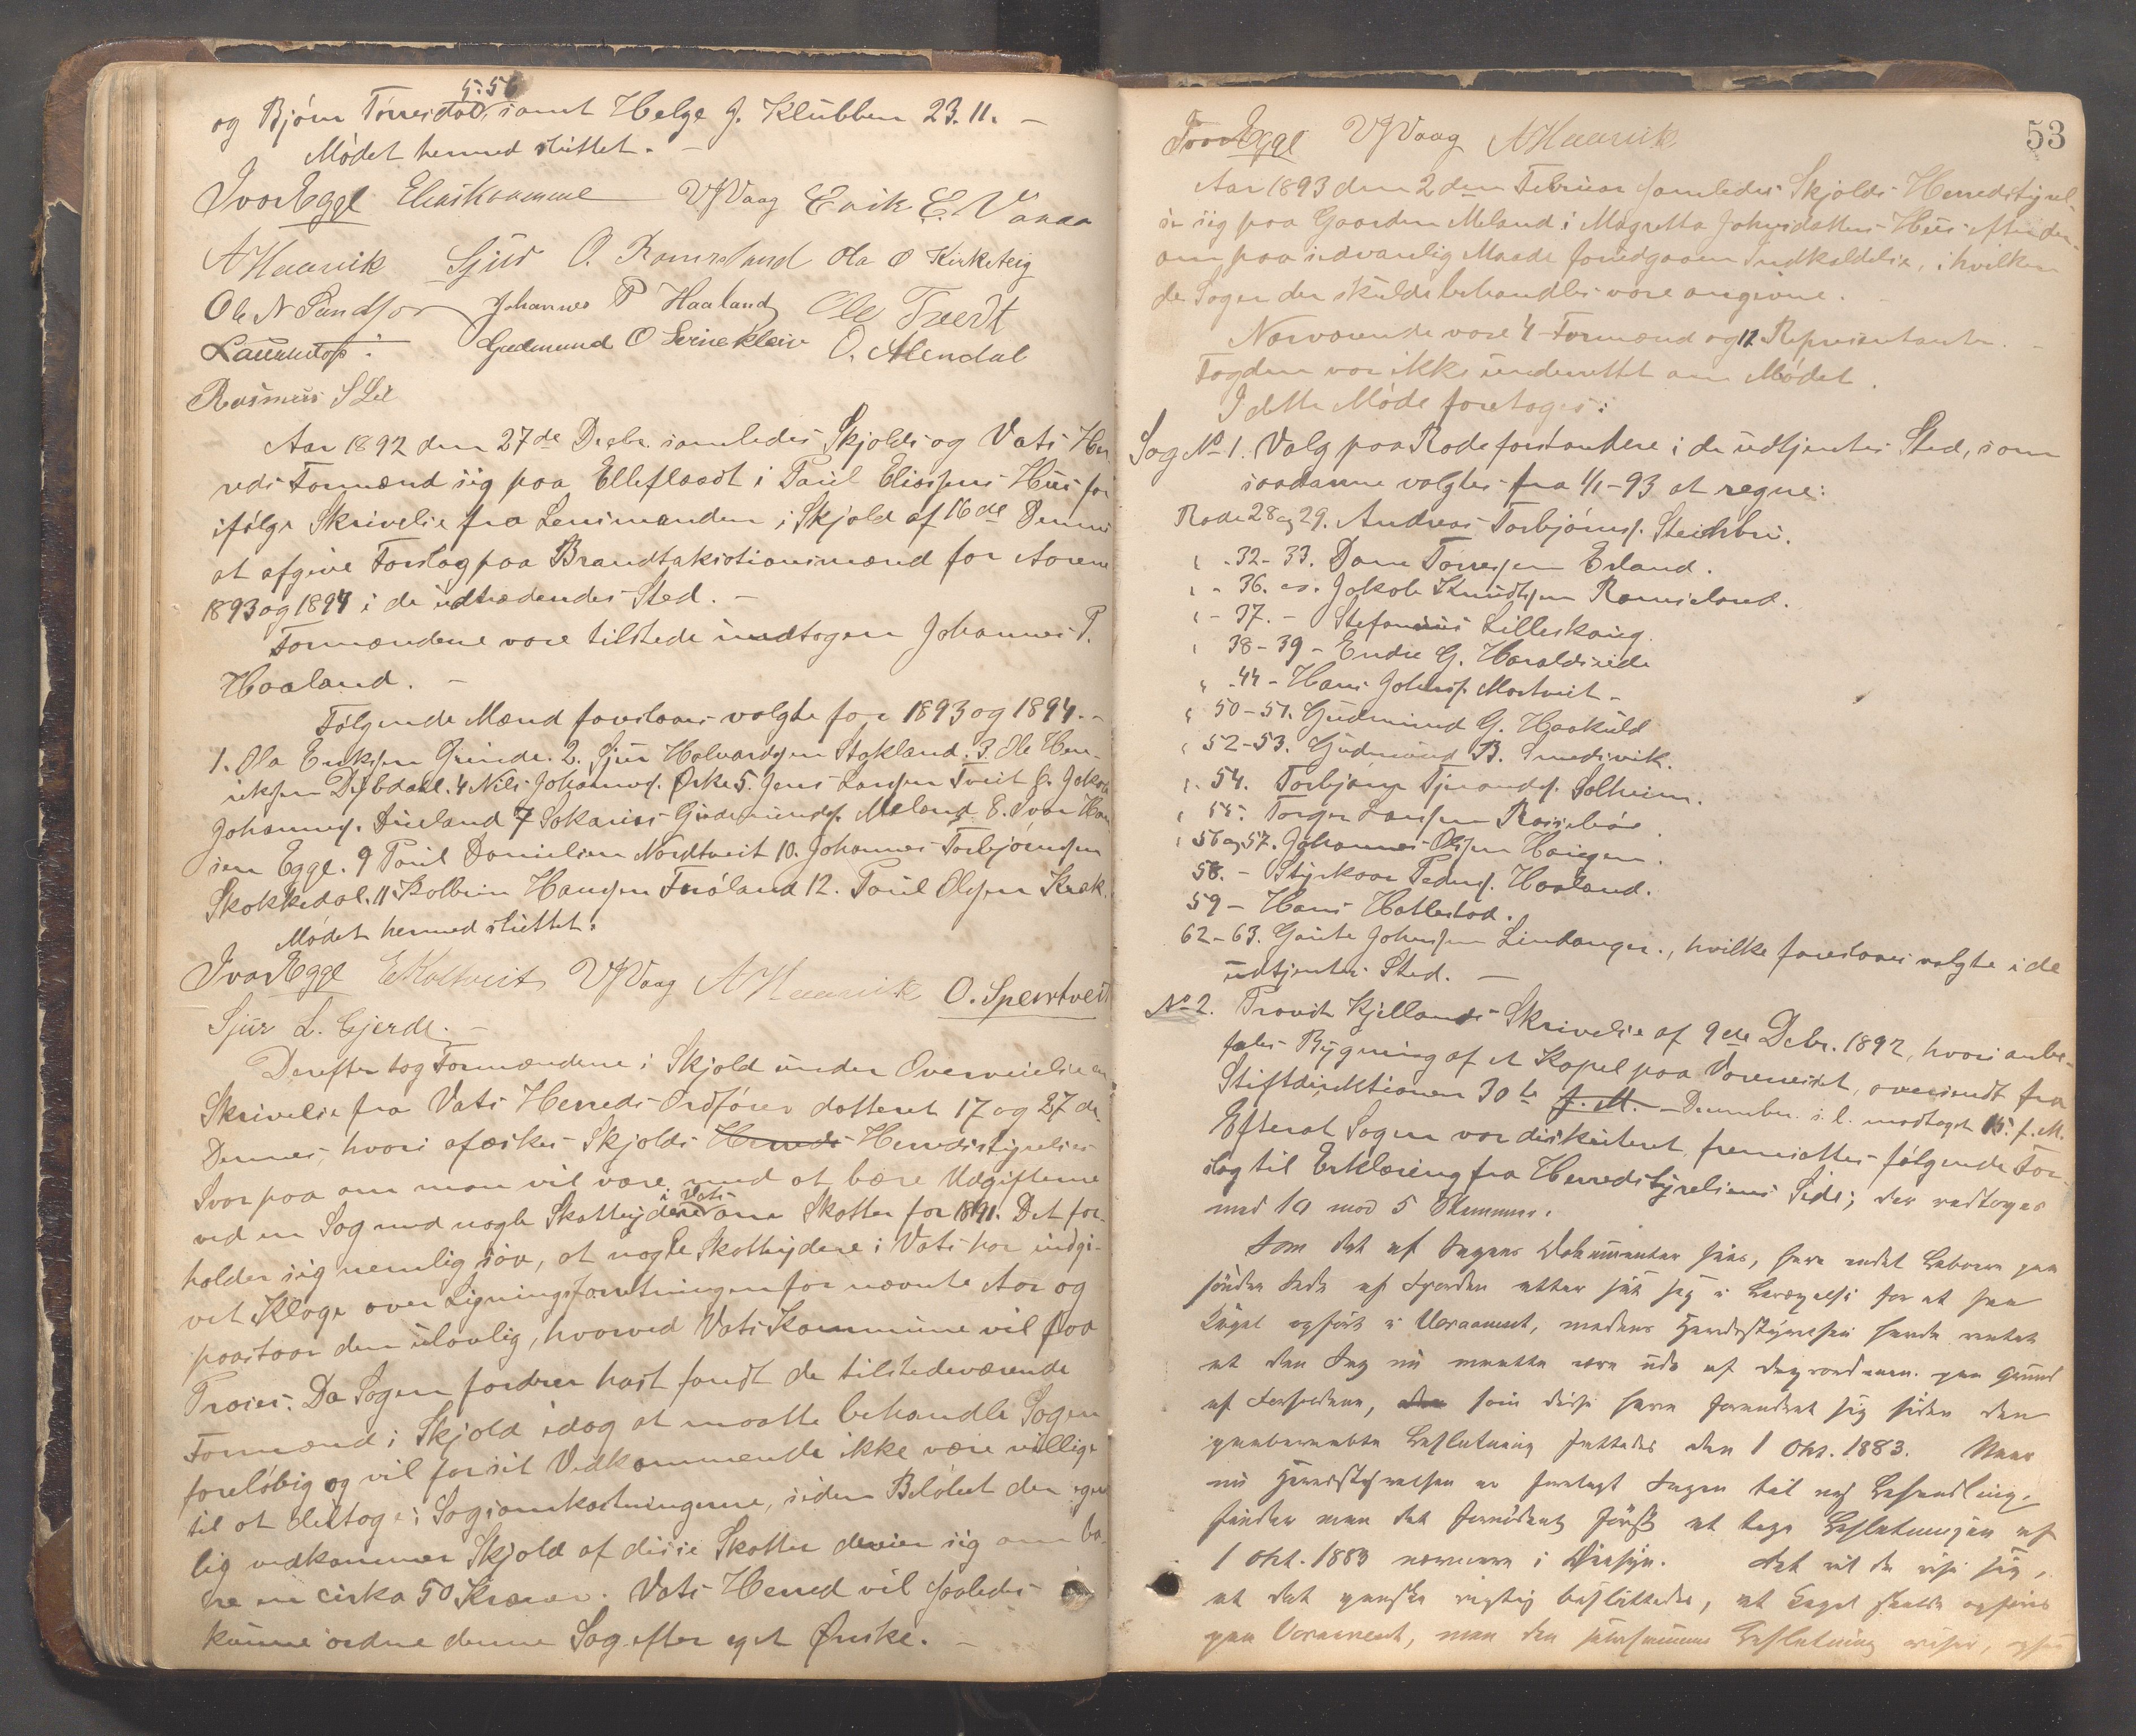 5.56
og Bjørn Tørresdal, samt Helge J. Klubben 23.11. –
Mødet hermed sluttet. –
Ivar Egge Elias Kvamme V J Vaag Erik E. Vaaga
A Haavik Sjur O. Ramsland Ola O Kirketeig
Ole N Sandfor Johannes P Haaland Ole Tvedt
Gudmund O Svinekleiv O. Alendal
Rasmus S Lie
Aar 1892 den 27de Decbr. samledes Skjolds og Vats Her-
reds Formænd sig paa Elleflaadt i Paul Eliassens Hus for
ifølge Skrivelse fra Lensmanden i Skjold af 16de Dennes
at afgive Forslag paa Brandtakstionsmænd for Aarene
1893 og 1894 i de udtrædendes Sted. –
Formændene vare tilstede undtagen Johannes P.
Haaland. –
Følgende Mænd foreslaaes valgte for 1893 og 1894. –
1. Ola Eriksen Grinde. 2. Sjur Halvardsen Stakland. 3. Ole Hen-
riksen Dybdahl. 4 Nils Johannes. Ørke 5. Jens Larsen Tveit 6. Jakob
Johannes. Dueland 7 Sakarias Gudmunds. Meland 8. Ivar Han-
sen Egge. 9 Paul Danielsen Nordtveit 10. Johannes Torbjørnsen
Skokkedal. 11 Kolbein Hansen Frøland 12. Paul Olsen Krak.
Mødet hermed sluttet.
Ivar Egge V J Vaag A Haavik O. Spertveit
Sjur L. Gjerde. –
Derefter tog Formændene i Skjold under Overveielse en
Skrivelse fra Vats Herreds Ordfører datteret 17 og 27 de
Dennes, hvori afæskes Skjolds Herreds Herredstyrelses
Svar paa om man vil være med at bære Udgifterne
i Vats
ved en Sag med nogle Skatteydere om Skatter for 1891. Det for-
holder sig nemlig saa, at nogle Skatteydere i Vats har indgi-
vet Klage over Ligningsforretningen for nævnte Aar og
paastaar den ulovlig, hvorved Vats Kommune vil faa
Proces. Da Sagen fordrer hast fandt de tilstedeværende
Formænd i Skjold idag at maatte behandle Sagen
foreløbig og vil for sit Vedkommende ikke være villige
til at deltage i Sagsomkostningerne, siden Beløbet der egent-
lig vedkommer Skjold af disse Skatter dreier sig om ba-
re en cirka 50 Kroner. Vats Herred vil saaledes
kunne ordne denne Sag efter eget Ønske. –
53
Ivar Egge V J Vaag A Haavik
Aar 1893 den 2den Februar samledes Skjolds Herredstyrel-
se sig paa Gaarden Meland i Magretta Johnsdatters Hus efter den
om paa sedvanlig Maade foregaaen Indkaldelse, i hvilken
de Sager der skulde behandles vare angivne.
Nærværende vare 4 Formænd og 12 Representanter. –
Fogden var ikke underrettet om Mødet.
I dette Møde foretoges:
Sag No 1. Valg paa Rodeforstandere i de udtjentes Sted, som
saadanne valgtes fra 1/1-93 at regne:
Rode 28 og 29. Andreas Torbjørns. Steinbru.
" - 32 - 33. Dane Tørresen Erland.
" - 36. Jakob Knudtsen Ramsland.
" - 37. - Stefanius Lilleskaug.
" 38 - 39 - Endre G. Haraldseide
" - 44 - Hans Johns. Mortveit -
" 50 - 51. Gudmund G. Haakuld
" 52 - 53. Gudmund B. Smedsvik.
" 54. Torbjørn Solheim.
" 55. Torger Larsen
" 56 og 57. Johannes Olsen Haugen.
58. - Styrkaar Peders. Haaland.
59 - Hans Hatlestad.
62 - 63. Gaute Johnsen Lindanger., hvilke foreslaaes valgte i de
udtjentes Sted. –
No 2. Provst Kjellands Skrivelse af 9de Debr. 1892, hvori anbe-
fales Bygning af et Kapel paa Vormesiet, oversendt fra
Stiftdirektionen 30te f. M. December s. l. modtaget 15. f. M.
Efterat Sagen var diskuteret, fremsattes følgende For-
slag til Erklæring fra Herredstyrelsens Side; der vedtoges
med 10 mod 5 Stemmer.
Som det af Sagens Dokumenter sees, have endel Beboere paa
søndre Side af Fjorden atter sat sig i Bevægelse for at faa
Kapel opført i Vormesiet, medens Herredstyrelsen havde ventet
at den Sag nu maatte være ude af Dagsordenen paa Grund
af Forholdene, som disse have forandret sig siden den
paaberaabte Beslutning fattedes den 1 Okt. 1883. Naar
nu Herredstyrelsen er forelagt Sagen til ny Behandling,
finder man det fornødent først at tage Beslutningen af
1 Okt. 1883 nærmere i Øiesyn. Det vil da vise sig,
at det ganske rigtig besluttedes, at Kapel skulde opføres
paa Vormesiet, men den Beslutning